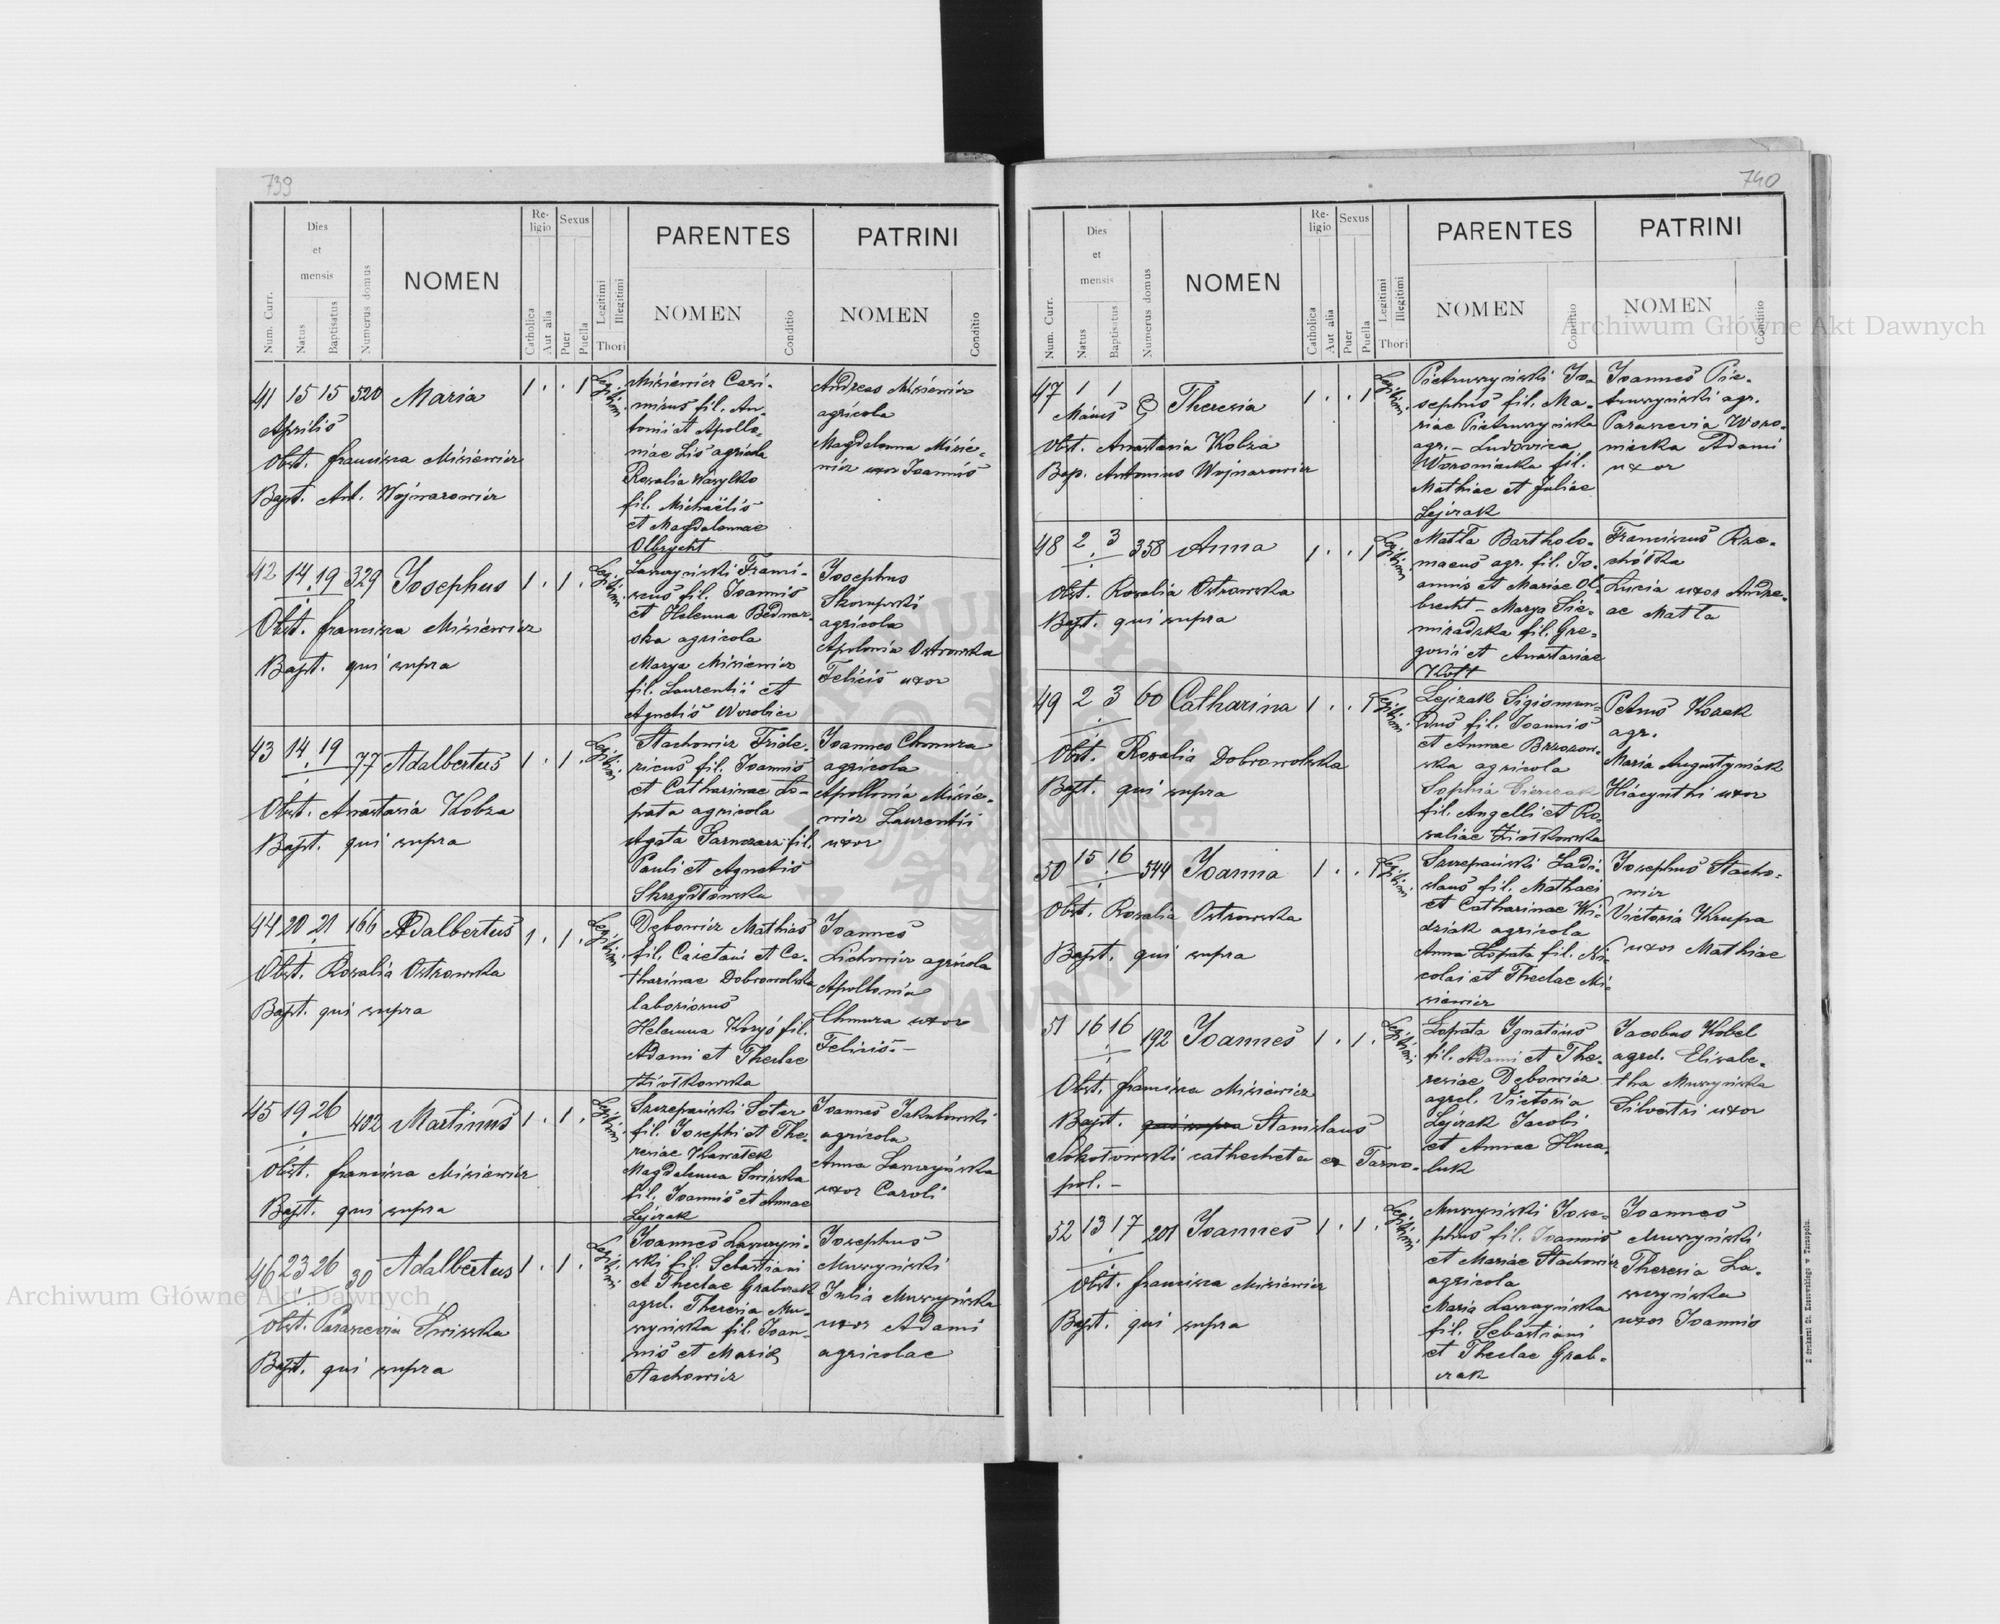 739
Num. Curr.
Dies
et
mensis
Natus
Baptisatus
Numerus domus
NOMEN
Re-
ligio
Catholica
Aut alia
Sexus
Puer
Puella
Legitimi
Illegitimi
Thori
PARENTES
NOMEN
Conditio
PATRINI
NOMEN
Conditio
41 15 15 520 Maria 1 . . 1 Legitimi
Aprilis
Obst. Francisca Misiewicz
Bapt. Ant. Wojnarowicz
Misiewicz Casi-
mirus fil. An-
tonii et Apollo-
niae Lis agricola
Rosalia Wasylko
fil. Michaëlis
et Magdalenae
Olbrycht
Andreas Misiewicz
agricola
Magdalena Misie-
wicz uxor Joannis
42 14 19 329 Josephus 1 . 1 . Legitimi
Obst. Francisca Misiewicz
Bapt. qui supra
Ławryński Franci-
scus fil. Joannis
et Helenna Bednar-
ska agricola
Marya Misiewicz
fil. Laurentii et
Agnetis Worobiec
Josephus
Skorupski
agricola
Apolonia Ostrowska
Felicis uxor
43 14 19 77 Adalbertus 1 . 1 . Legitimi
Obst. Anastasia Kobza
Bapt. qui supra
Stachowicz Fride-
ricus fil. Joannis
et Catharinae Ło-
pata agricola
Agata fil.
Pauli et Agnetis
Skrzydłowska
Joannes Chmura
agricola
Apollonia Misie-
wicz Laurentii
uxor
44 20 21 166 Adalbertus 1 . 1 . Legitimi
Obst. Rosalia Ostrowska
Bapt. qui supra
Dębowicz Mathias
fil. Caietani et Ca-
tharinae Dobrowolska
laboriosus
Helenna Koryś fil.
Adami et Theclae
Ziółkowska
Joannes
Lichowicz agricola
Apollonia
Chmura uxor
Felicis.-
45 19 26 432 Martinus 1 . 1 . Legitimi
Obst. Francisca Misiewicz
Bapt. qui supra
Szczepański Soter
fil. Josephi et The-
resiae Kawałek
Magdalenna Świrska
fil. Joannis et Annae
Lejczak
Joannes Jakubowski
agricola
Anna Ławryńska
uxor Caroli
46 23 26 30 Adalbertus 1 . 1 . Legitimi
Obst. Parascevia Świrska
Bapt. qui supra
Joannes Ławryń-
ski fil. Sebastiani
et Theclae Grabczak
agrel. Theresia Mu-
szyńska fil. Joan-
nis et Marię
Stachowicz
Josephus
Muszyński
Julia Muszyńska
uxor Adami
agricolae
740
Num. Curr.
Dies
et
mensis
Natus
Baptisatus
Numerus domus
NOMEN
Re-
ligio
Catholica
Aut alia
Sexus
Puer
Puella
Legitimi
Illegitimi
Thori
PARENTES
NOMEN
Conditio
PATRINI
NOMEN
Conditio
47 1 1 Theresia 1 . . 1 Legitimi
Maius
Obst. Anastasia Kobza
Bap. Antonius Wojnarowicz
Pietruszyński Jo-
sephus fil. Ma-
riae Pietruszyńska
agr. - Ludovica
Woroniecka fil.
Mathiae et Juliae
Lejczak
Joannes Pie-
truszyński agr.
Parascevia Woro-
niecka Adami
uxor
48 2 3 358 Anna 1 . . 1 Legitimi
Obst. Rosalia Ostrowska
Bapt. qui supra
Matla Bartholo-
maeus agr. fil. Jo-
annis et Mariae Ol-
brecht - Marya Sie-
miradzka fil. Gre-
gorii et Anastasiae
Koft
Franciscus Rze-
chółka
Lucia uxor Andre-
ae Matla
49 2 3 60 Catharina 1 . . 1 Legitimi
Obst. Rosalia Dobrowolska
Bapt. qui supra
Lejczak Sigismun-
dus fil. Joannis
et Annae Brzozow-
ska agricola
Sophia
fil. Angelli et Ro-
saliae Ziółkowska
Petrus Kozak
agr.
Maria Augustyniak
Hiacynthi uxor
50 15 16 544 Joanna 1 . . 1 Legitimi
Obst. Rosalia Ostrowska
Bapt. qui supra
Szczepański Ladi-
slaus fil. Mathaei
et Catharinae Wi-
dziak agricola
Anna Łopata fil. Ni-
colai et Theclae Mi-
siewicz
Josephus Stacho-
wicz
Victoria Krupa
uxor Mathiae
51 16 16 192 Joannes 1 . 1 . Legitimi
Obst. Francisca Misiewicz
Bapt. qui supra Stanislaus
Sokołowski catecheta ex Tarno-
pol.-
Łopata Ignatius
fil. Adami et The-
resiae Dębowicz
agrel. Victoria
Lejczak Jacobi
et Annae Huca-
luk
Jacobus Kobel
agrel. Elisabe-
tha Muszyńska
Silvestri uxor
52 13 17 201 Joannes 1 . 1 . Legitimi
Obst. Francisca Misiewicz
Bapt. qui supra
Muszyński Jose-
phus fil. Joannis
et Mariae Stachowicz
agricola
Maria Ławryńska
fil. Sebastiani
et Theclae Grab-
czak
Joannes
Muszyński
Theresia Ła-
wryńska
uxor Joannis
Z drukarni St. Kossowskiego w Tarnopolu.
Archiwum Główne Akt Dawnych
Archiwum Główne Akt Dawnych